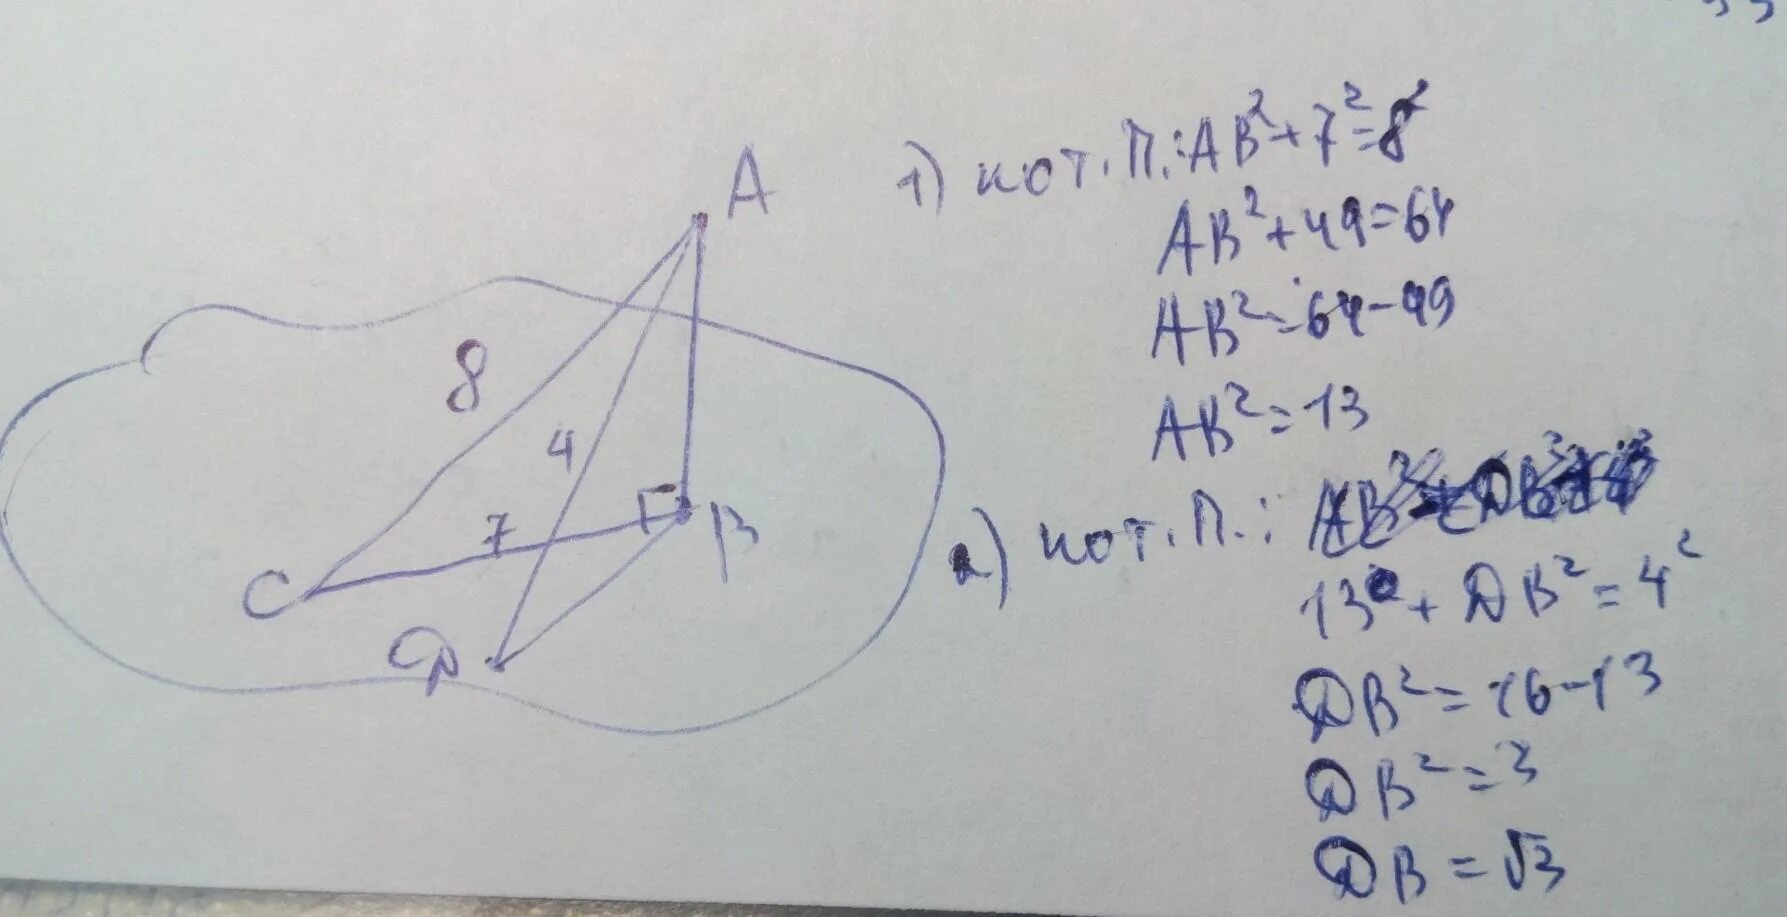 A
8
4
7
B
C
D
1) по т. П.: AB²+7²=8²
AB²+49=64
AB²=64-49
AB²=13
2) по т. П.:
13+DB²=4²
DB²=16-13
DB²=3
DB=√3